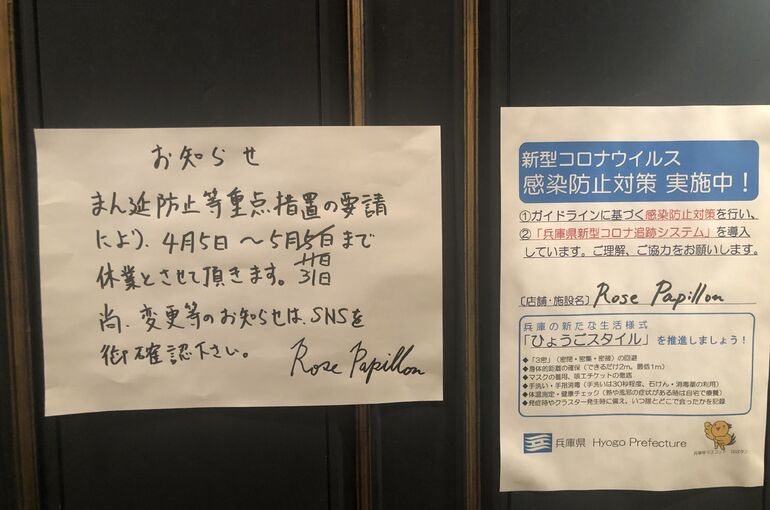 お知らせ
まん延防止等重点措置の要請
により、4月5日 ～ 5月5日まで
11日
休業とさせて頂きます。31日
尚、変更等のお知らせは、SNSを
御確認下さい。
Rose Papillon
新型コロナウイルス
感染防止対策 実施中！
①ガイドラインに基づく感染防止対策を行い、
②「兵庫県新型コロナ追跡システム」を導入
しています。ご理解、ご協力をお願いします。
［店舗・施設名］ Rose Papillon
兵庫の新たな生活様式
「ひょうごスタイル」を推進しましょう！
◆「3密」（密閉・密集・密接）の回避
◆身体的距離の確保（できるだけ2m、最低1m）
◆マスクの着用、咳エチケットの徹底
◆手洗い・手指消毒（手洗いは30秒程度、石けん・消毒薬の利用）
◆体温測定・健康チェック（熱や風邪の症状がある時は自宅で療養）
◆発症時やクラスター発生時に備え、いつ誰とどこで会ったかを記録
兵庫県 Hyogo Prefecture
兵庫県マスコット はばタン